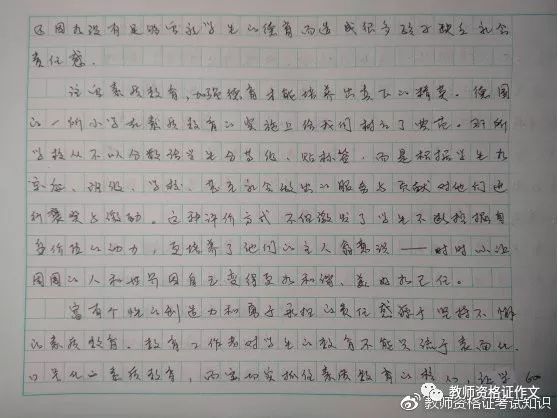 因为没有足够重视学生的德育而造成很多孩子缺乏社会
责任感。
注重素质教育,加强德育才能培养出真正的精英。德国
的一所小学在素质教育的实施上给我们树立了典范。那所
学校从不以分数给学生分等级、贴标签,而是根据学生为
家庭、班级、学校、甚至社会做出的服务与贡献对他们进
行褒奖与激励。这种评价方式不但激发了学生不断挖掘自
身价值的动力,更培养了他们的主人翁意识——时时以让
周围的人和世界因自己变得更加和谐、美好为己任。
富有个性的创造力和勇于承担的责任感源于坚持不懈
的素质教育。教育工作者对学生的教育不能只流于表面化、
口号化的素质教育,而应切实抓住素质教育的核心,让学
600
教师资格证作文
@教师资格证考试知识